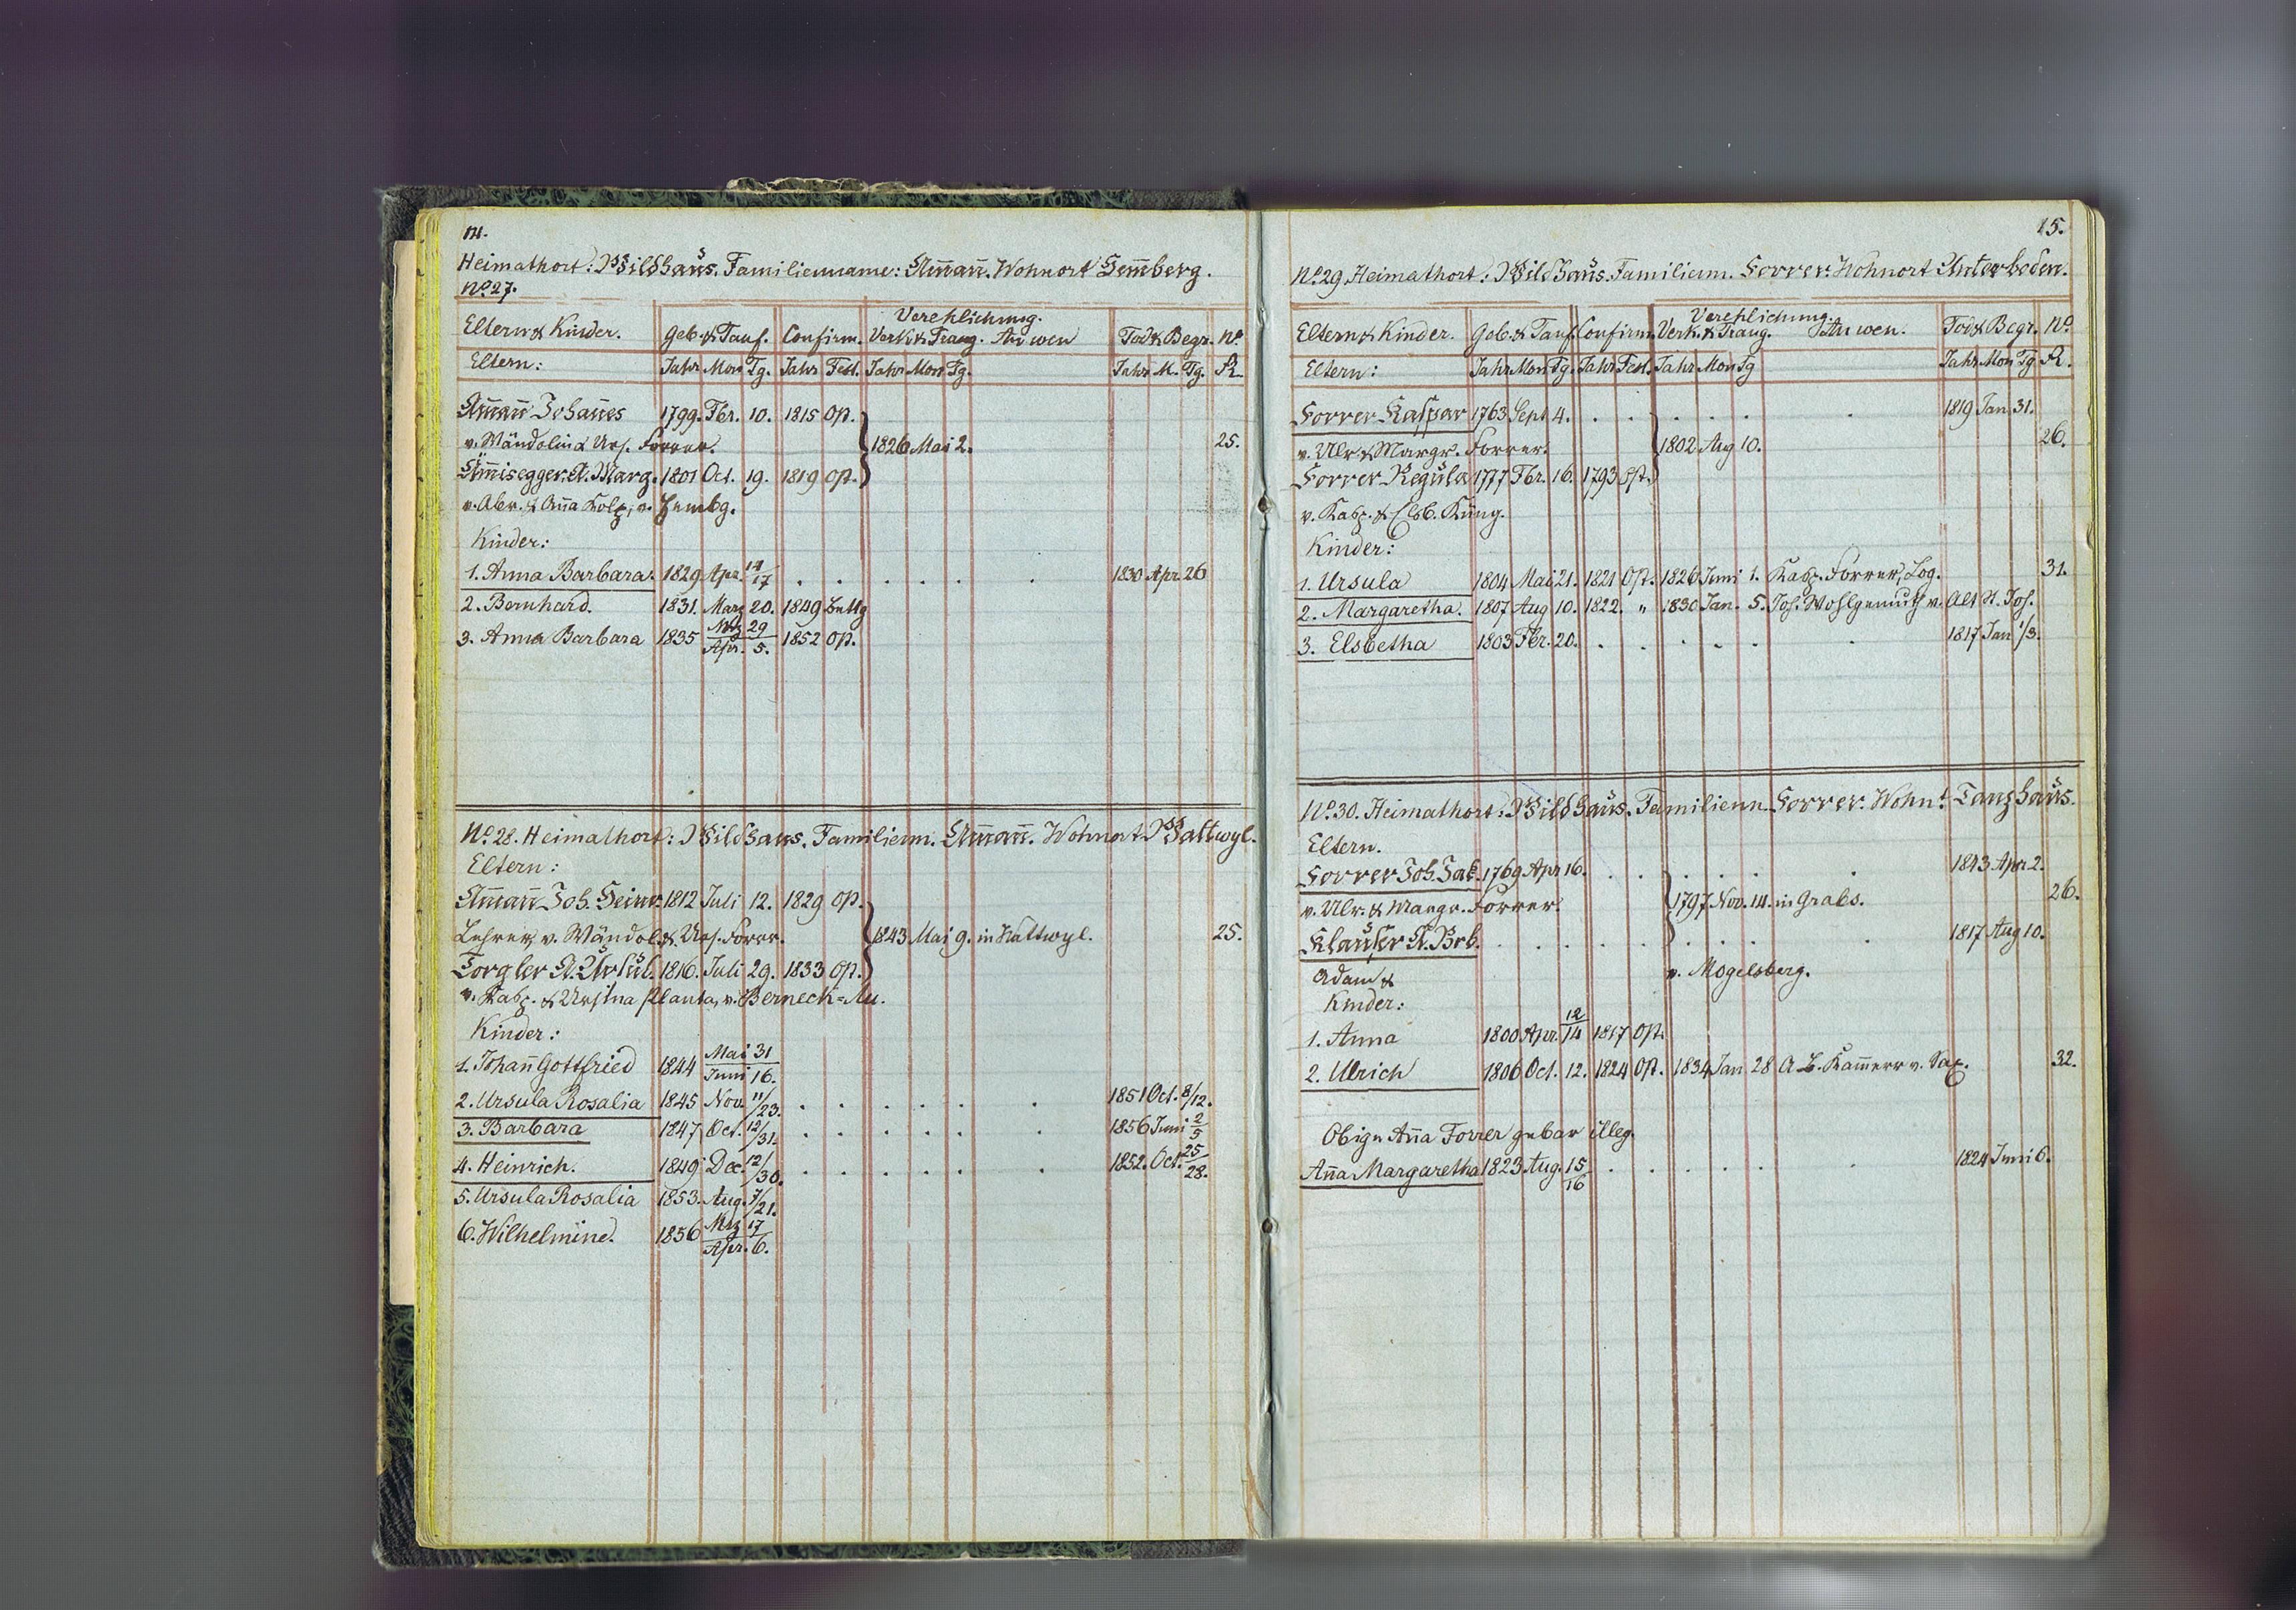 14.
Heimathort: Wildhaus. Familienname: Am̄an̄. Wohnort Hem̄berg.
No. 27.
Verehlichung.
Eltern & Kinder. Geb. & Tauf. Confirm. Verk. & Traug. An wen Tod & Begr. No.
Eltern: Jahr Mon Tg. Jahr Fest. Jahr Mon Tg. Jahr M. Tg. R.
Am̄an̄ Johan̄es 1799. Fbr. 10. 1815 Op.
v. Wändolin & Urs. Forrer. 1826 Mai 2. 25.
Am̄isegger, A. Marg. 1801 Oct. 19. 1819 Op.
v. Abr. & An̄a Kolp, v. Hembg.
Kinder:
1. Anna Barbara. 1829 Apr. 14/17 . . . . . . 1830 Apr 26
2. Bernhard. 1831. Marz 20. 1849 Bettg
3. Anna Barbara 1835 Mrz 29/Apr. 5. 1852 Op.
No. 28. Heimathort: Wildhaus. Familienn. Am̄an̄. Wohnort Wattwyl.
Eltern:
Am̄an̄ Joh. Heinr. 1812 Juli 12. 1829 Op.
Lehrer, v. Wändol. & Urs. Forrer. 1843. Mai 9. in Wattwyl. 25.
Torgler A. Ursul. 1816. Juli 29. 1833 Op.
v. Kasp. & Ursina Planta, v. Berneck-Au.
Kinder:
1. Johan̄ Gottfried 1844 Mai 31/Juni 16.
2. Ursula Rosalia 1845 Nov. 11/23. . . . . . . 1851 Oct. 8/12.
3. Barbara 1847 Oct. 12/31. . . . . . . 1856 Juni 2/5
4. Heinrich. 1849 Dec. 12/30. . . . . . . 1852. Oct. 25/28.
5. Ursula Rosalia 1853. Aug. 7/21.
6. Wilhelmine. 1856 Mrz 17/Apr. 6.
15.
No. 29. Heimathort: Wildhaus. Familienn. Forrer. Wohnort Unterboden.
Verehlichung.
Eltern & Kinder. Geb. & Tauf. Confirm. Verk. & Traug. An wen. Tod & Begr. No.
Eltern: Jahr Mon Tg. Jahr Fest. Jahr Mon Tg Jahr Mon Tg. R.
Forrer Kaspar 1763 Sept 4. . . . . . . 1819 Jan 31.
v. Ulr. & Margr. Forrer. 1802 Aug 10. 26.
Forrer Regula 1777 Fbr. 16. 1793 Op.
v. Kasp. & Elsb. Küng.
Kinder:
1. Ursula 1804 Mai 21. 1821 Op. 1826 Juni 1. Kasp. Forrer, Log. 31.
2. Margaretha. 1807 Aug 10. 1822. „ 1830 Jan. 5. Jos. Wohlgemuth v. Alt St. Joh.
3. Elsbetha 1803 Fbr. 20. . . . . . . 1817 Jan 1/3.
No. 30. Heimathort: Wildhaus. Familienn. Forrer. Wohnt. Tanzhaus.
Eltern.
Forrer Joh. Jak. 1769 Apr 16. . . . . . . 1843 Apr 2.
v. Ulr. & Margr. Forrer. 1797 Nov. 14. in Grabs. 26.
Klauser A. Brb. . . . . . . . . 1817 Aug 10.
Adam & v. Mogelsberg.
Kinder:
1. Anna 1800 Apr. 12/14 1817 Op.
2. Ulrich 1806 Oct. 12. 1824 Op. 1834 Jan 28 A. B. Kam̄erer v. Sax. 32.
Obige An̄a Forrer gebar illeg.
An̄a Margaretha 1823 Aug. 15/16 . . . . . . 1824 Juni 6.